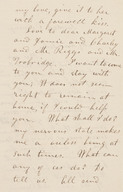 my love, give it to her
with a farewell kiss.
Love to dear Margaret
and Fannie and Charley
and Mr. Riggs and Mr.
Trobridge. I want to come
to you and stay with
you. It does not seem
right to remain at
home, if I could help
you. What shall I do?
My nervous state makes
me a useless being at
such times. What can
any of us do? Do
tell us. All send